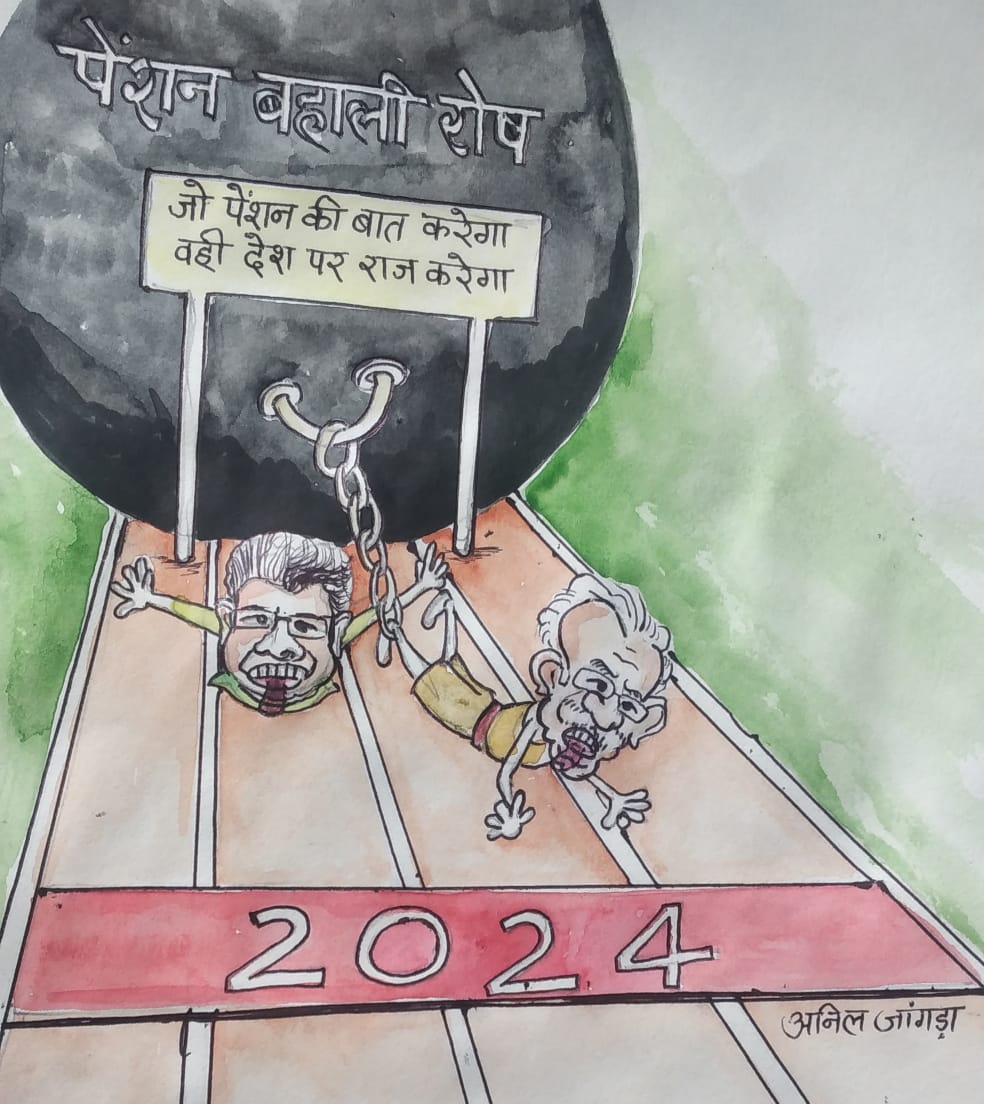 पेंशन बहाली रोष
जो पेंशन की बात करेगा
वही देश पर राज करेगा
2024
अनिल जांगड़ा